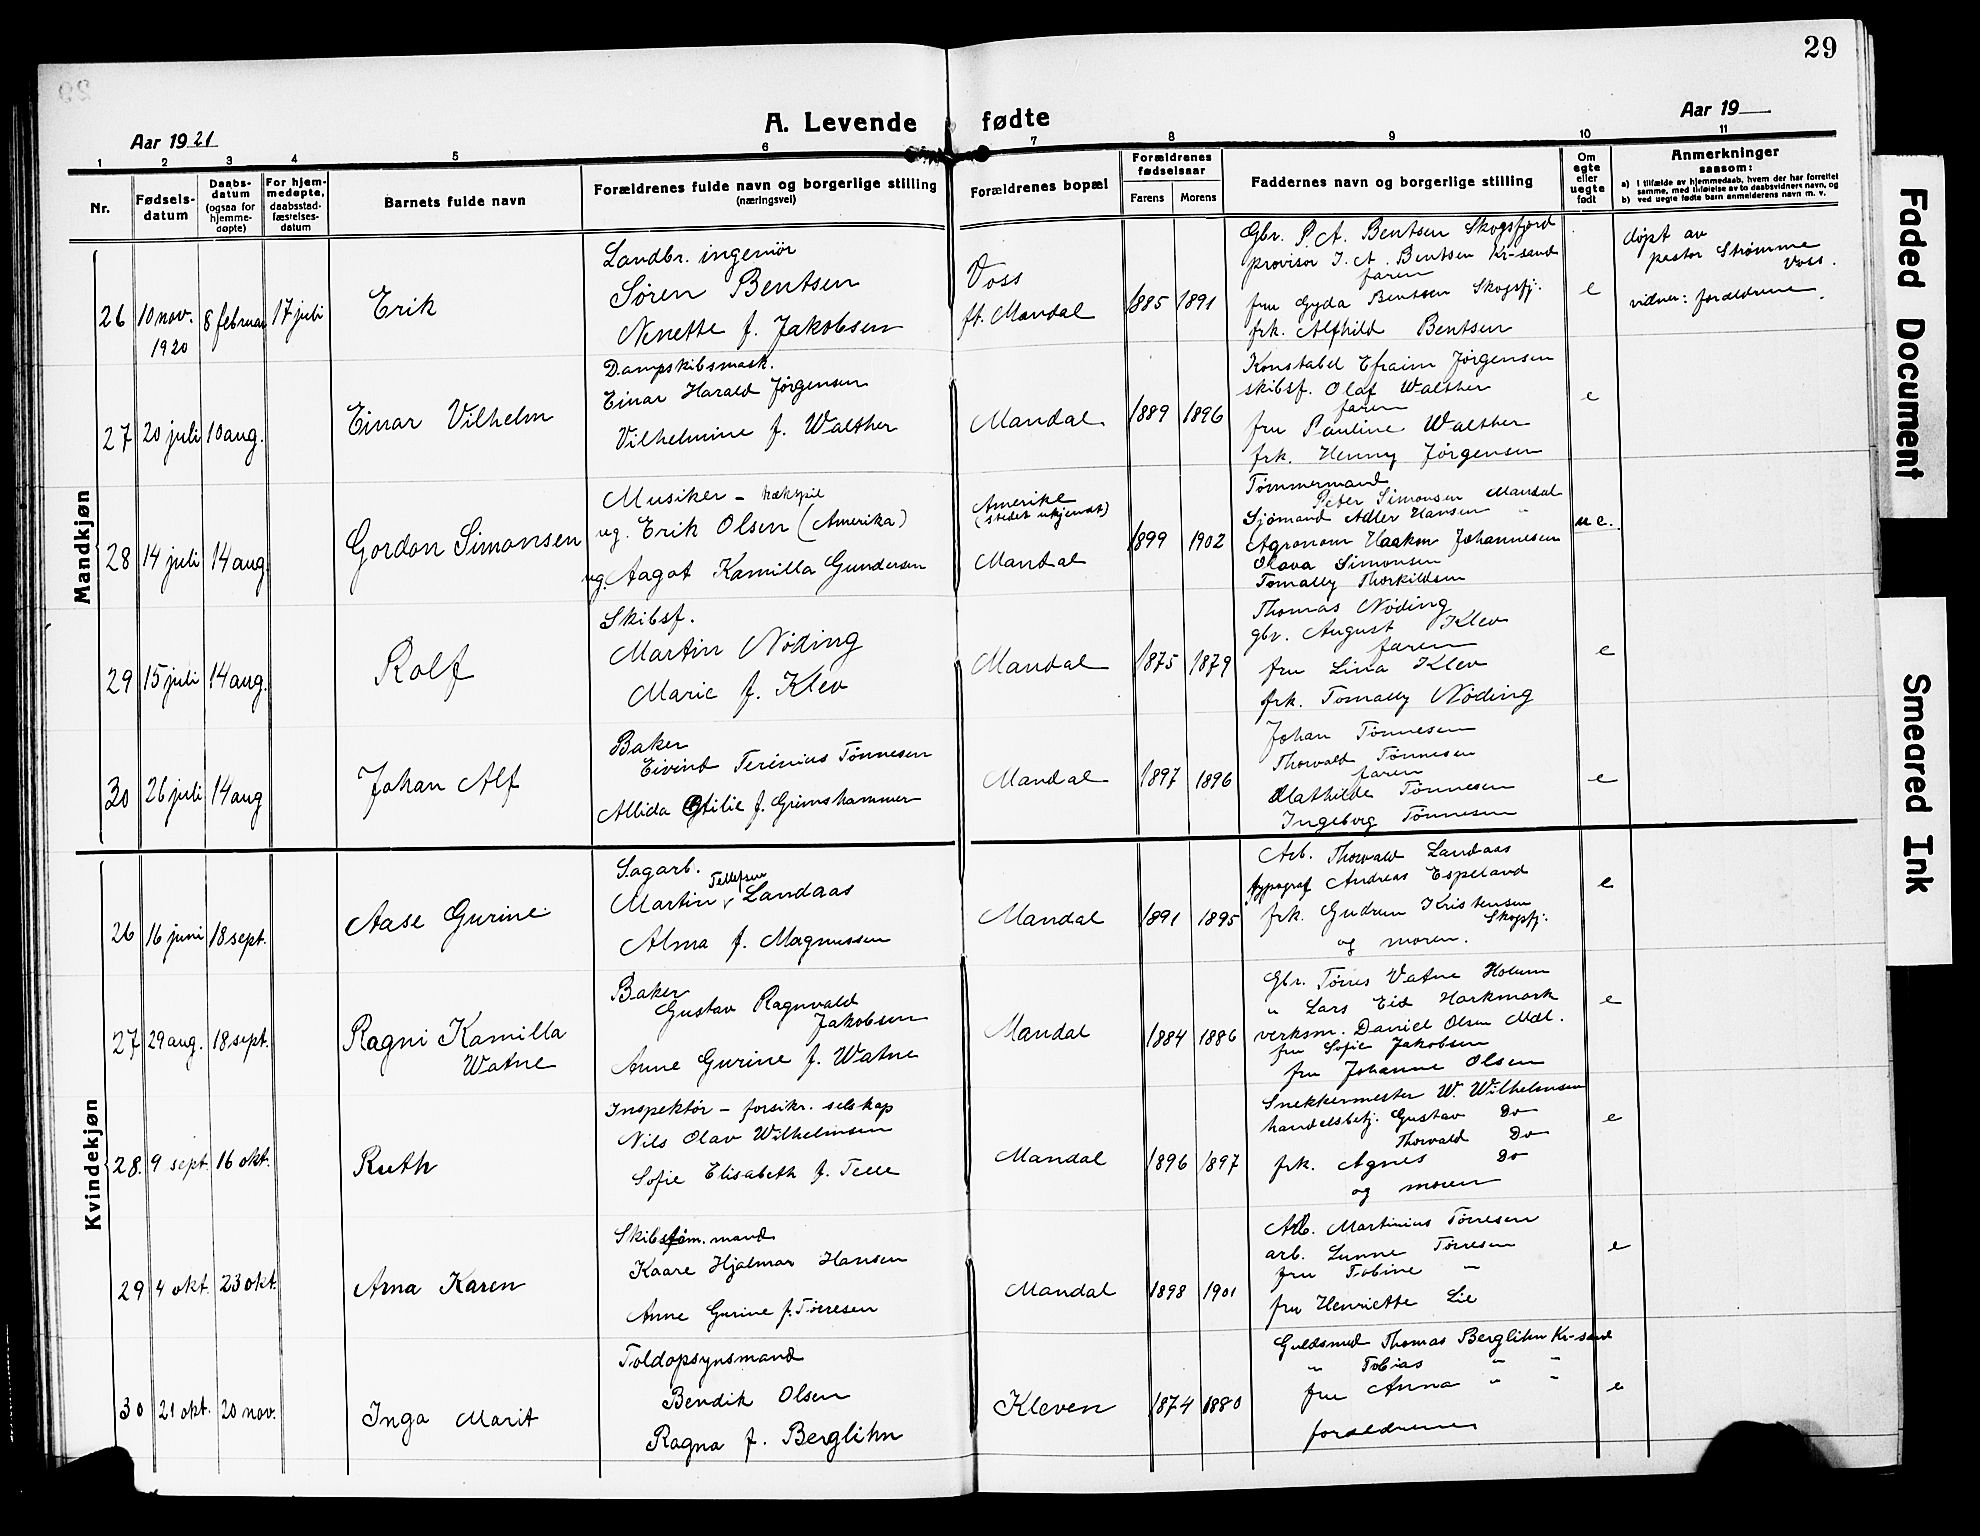 29
A. Levende fødte
Aar 1921
Aar 19
1 2 3 4 5 6 7 8 9 10 11
Nr.
Fødsels-
datum
Daabs-
datum
(ogsaa for
hjemme-
døpte)
For hjem-
medøpte,
daabsstad-
fæstelses-
datum
Barnets fulde navn
Forældrenes fulde navn og borgerlige stilling
(næringsvei)
Forældrenes bopæl
Forældrenes
fødselsaar
Farens Morens
Faddernes navn og borgerlige stilling
Om
egte
eller
uegte
født
Anmerkninger
saasom:
a) I tilfælde av hjemmedaab, hvem der har forrettet
samme, med tilføielse av to daabsvidners navn, og
b) ved uegte fødte barn anmelderens navn m. v.
Mandkjøn
26 10 nov. 1920 8 februar 17 juli
Erik
Landbr. ingeniør
Søren Bentsen
Nenette f. Jakobsen
Voss
ft. Mandal
1885 1891
Gbr. P. A. Bentsen Skogsfjord
provisor J. A. Bentsen Kr-sand
faren
fru Gyda Bentsen Skogsfj.
frk. Alfhild Bentsen
e
døpt av
pastor Strømme
Voss.
vidner: forældrene.
27 20 juli 10 aug.
Einar Vilhelm
Dampskibsmask.
Einar Harald Jørgensen
Vilhelmine f. Walther
Mandal
1889 1896
Konstabel Efraim Jørgensen
skibsf. Olaf Walther
faren
fru Pauline Walther
frk. Henny Jørgensen
e
28 14 juli 14 aug.
Gordon Simonsen
Musiker –
ug. Erik Olsen (Amerika)
ug. Aagot Kamilla Gundersen
Amerika
(stedet ukjendt)
Mandal
1899 1902
Tømmermand
Peter Simonsen Mandal
Sjømand Adler Hansen "
Agronom Haakon Johannesen
Olava Simonsen
Tomally Thorkildsen
u e.
29 15 juli 14 aug.
Rolf
Skibsf.
Martin Nøding
Marie f. Klev
Mandal
1875 1879
Thomas Nøding
gbr. August Klev
faren
fru Lina Klev
frk. Tomally Nøding
e
30 26 juli 14 aug
Johan Alf
Baker
Eivind Terinius Tønnesen
Allida Otilie f. Grimshammer
Mandal
1897 1896
Johan Tønnesen
Thorvald Tønnesen
faren
Mathilde Tønnesen
Ingeborg Tønnesen
e
Kvindekjøn
26 16 juni 18 sept.
Aase Gurine
Sagarb.
Martin Tellefsen Landaas
Alma f. Magnussen
Mandal
1891 1895
Arb. Thorvald Landaas
typograf Andreas Espeland
frk. Gudrun Kristensen
Skogsfj.
og moren.
e
27 29 aug. 18 sept.
Ragni Kamilla
Watne
Baker
Gustav Ragnvald
Jakobsen
Anne Gurine f. Watne
Mandal
1884 1886
Gbr. Tørres Vatne Holum
" Lars Eid Harkmark
verksm. Daniel Olsen Mdl.
fru Sofie Jakobsen
fru Johanne Olsen
e
28. 9 sept. 16 okt.
Ruth
Inspektør – forsikr. selskap
Nils Olav Wilhelmsen
Sofie Elisabeth f. Telle
Mandal
1896 1897
Snekkermester W. Wilhelmsen
handelsbetj. Gustav Do
Thorvald Do
frk. Agnes Do
og moren
e
29 4 okt. 23 okt.
Arna Karen
Skibstøm.mand
Kaare Hjalmar Hansen
Anne Gurine f. Tørresen
Mandal
1898 1901
Arb. Martinius Tørresen
arb. Lunne Tørresen
fru Tobine "
fru Henriette Lie
e
30 21 okt. 20 nov.
Inga Marit
Toldopsynsmand
Bendik Olsen
Ragna f. Berglihn
Kleven
1874 1880
Guldsmed Thomas Berglihn Kr-sand
" Tobias " "
fru Anna " "
forældrene
e
Faded Document
Smeared Ink